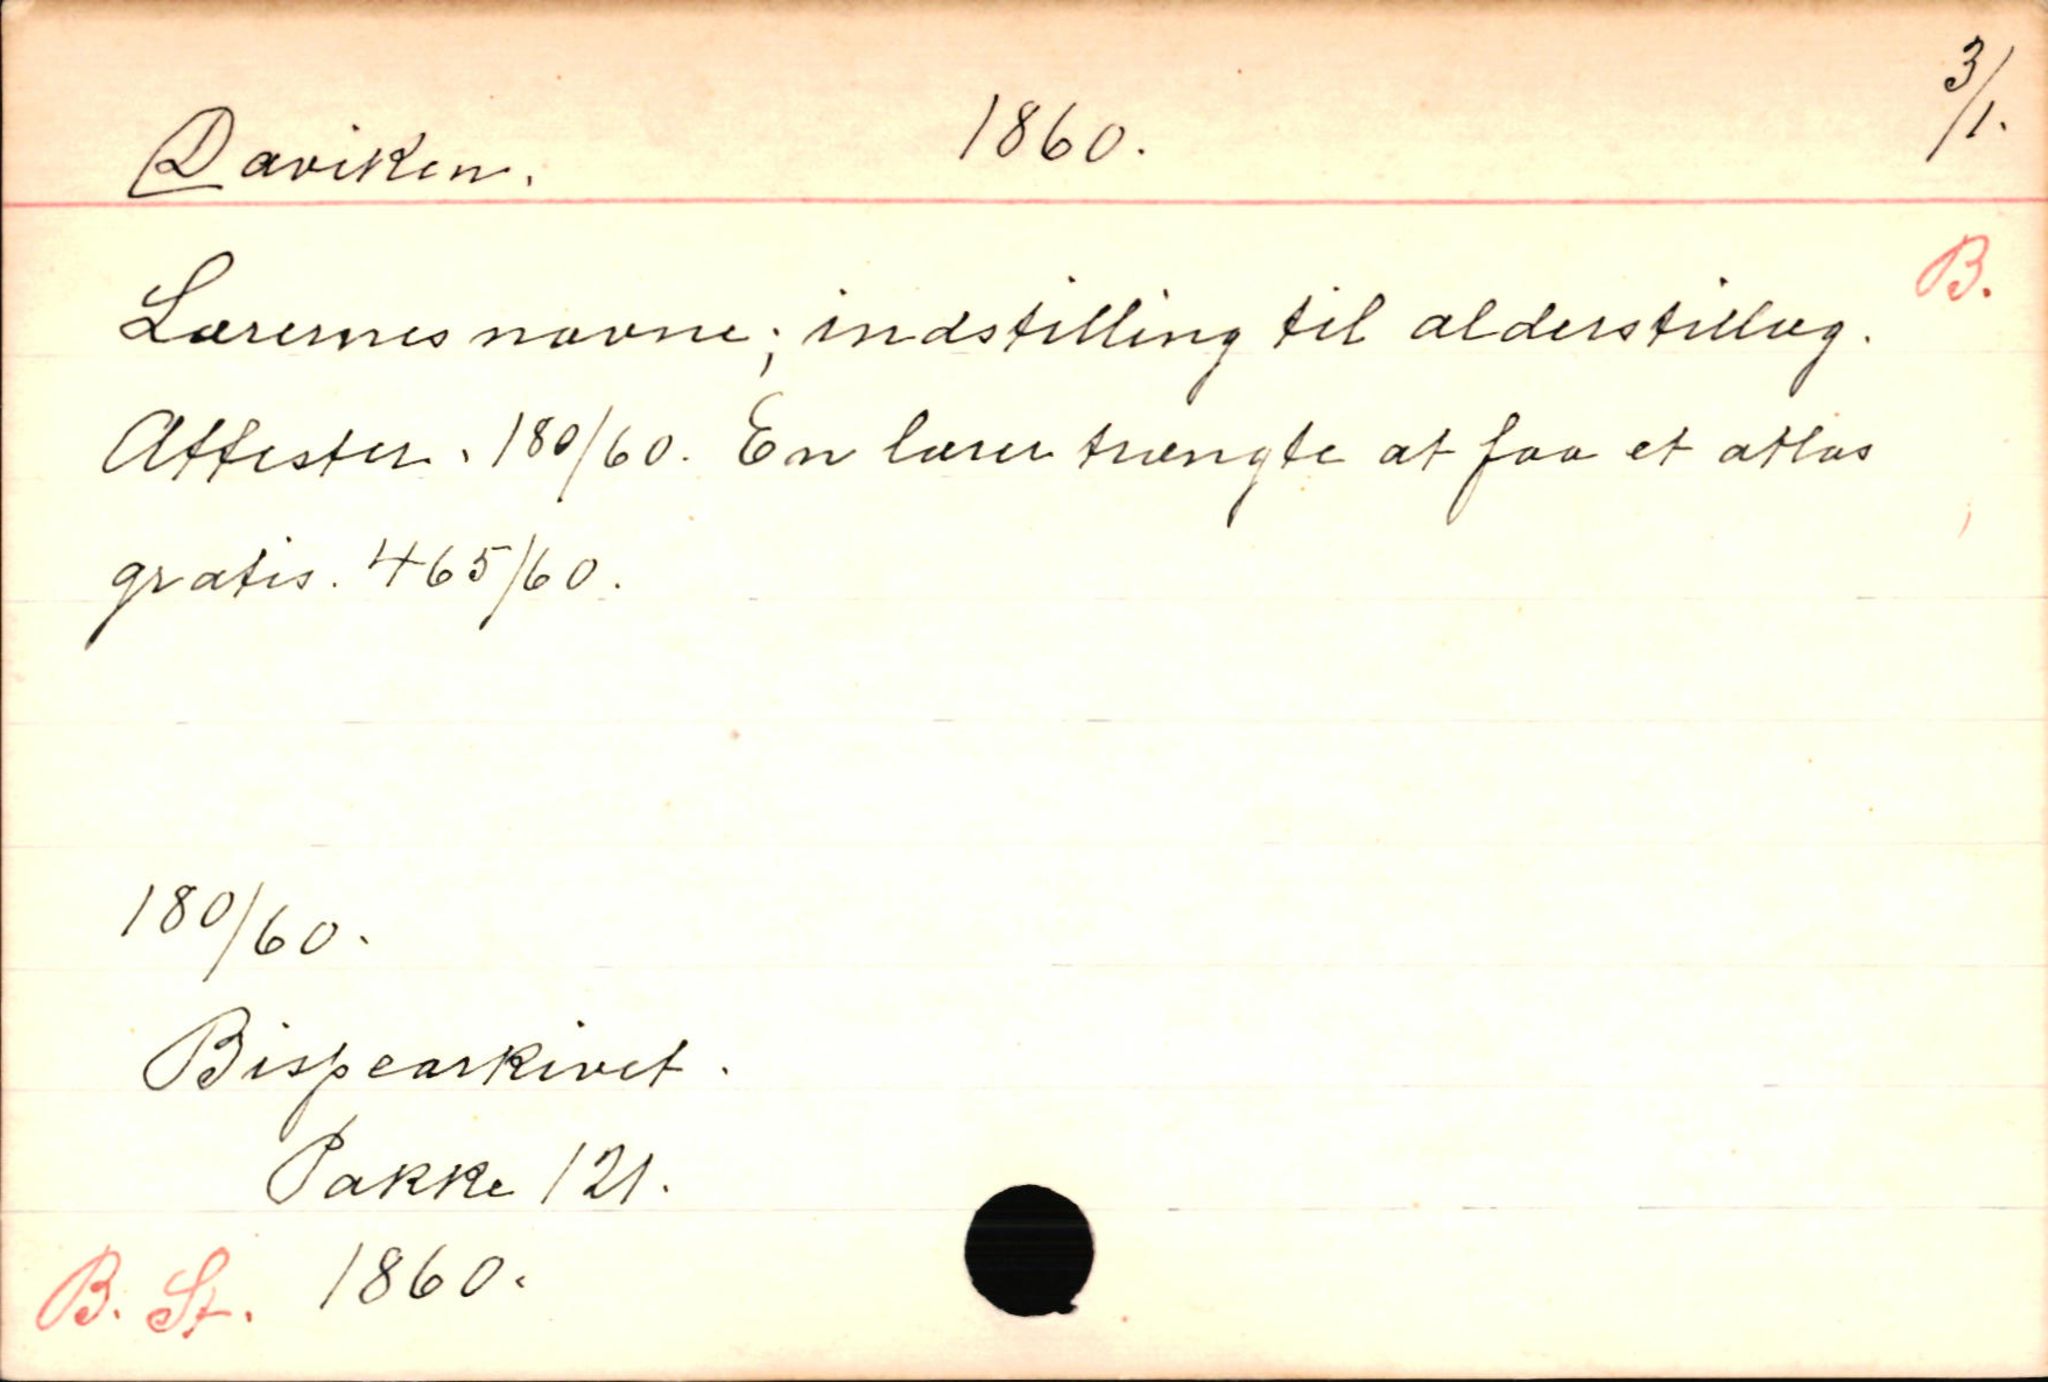 Daviken. 1860. 3/1.
B.
Lærernes navne; indstilling til alderstillæg.
Attester. 180/60. En lærer trængte at faa et atlas
gratis. 465/60.
180/60.
Bispearkivet.
Pakke 121.
B. St. 1860.